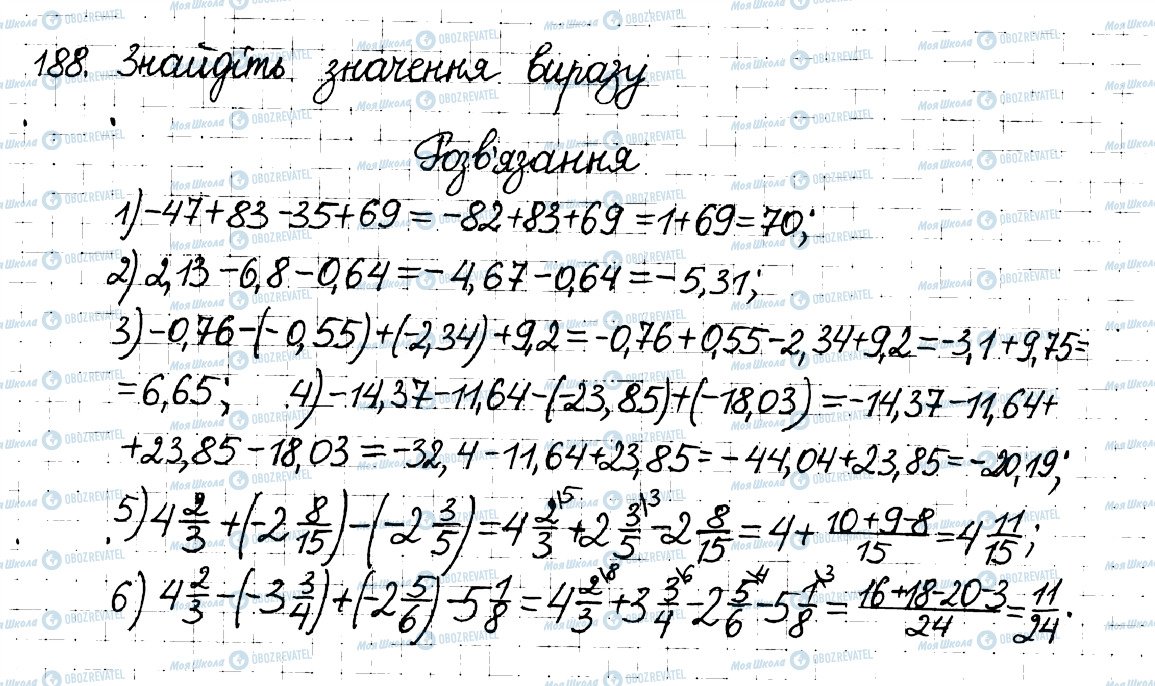 188. Знайдіть значення виразу
Розв'язання
1) -47+83-35+69 = -82+83+69 = 1+69 = 70;
2) 2,13-6,8-0,64 = -4,67-0,64 = -5,31;
3) -0,76-(-0,55)+(-2,34)+9,2 = -0,76+0,55-2,34+9,2 = -3,1+9,75=
= 6,65; 4) -14,37-11,64-(-23,85)+(-18,03) = -14,37-11,64+
+23,85-18,03 = -32,4-11,64+23,85 = -44,04+23,85 = -20,19;
5) 4 2/3 + (-2 8/15) - (-2 3/5) = 4 2/3 \5 + 2 3/5 \3 - 2 8/15 = 4 + (10+9-8)/15 = 4 11/15;
6) 4 2/3 - (-3 3/4) + (-2 5/6) - 5 1/8 = 4 2/3 \8 + 3 3/4 \6 - 2 5/6 \4 - 5 1/8 \3 = (16+18-20-3)/24 = 11/24.